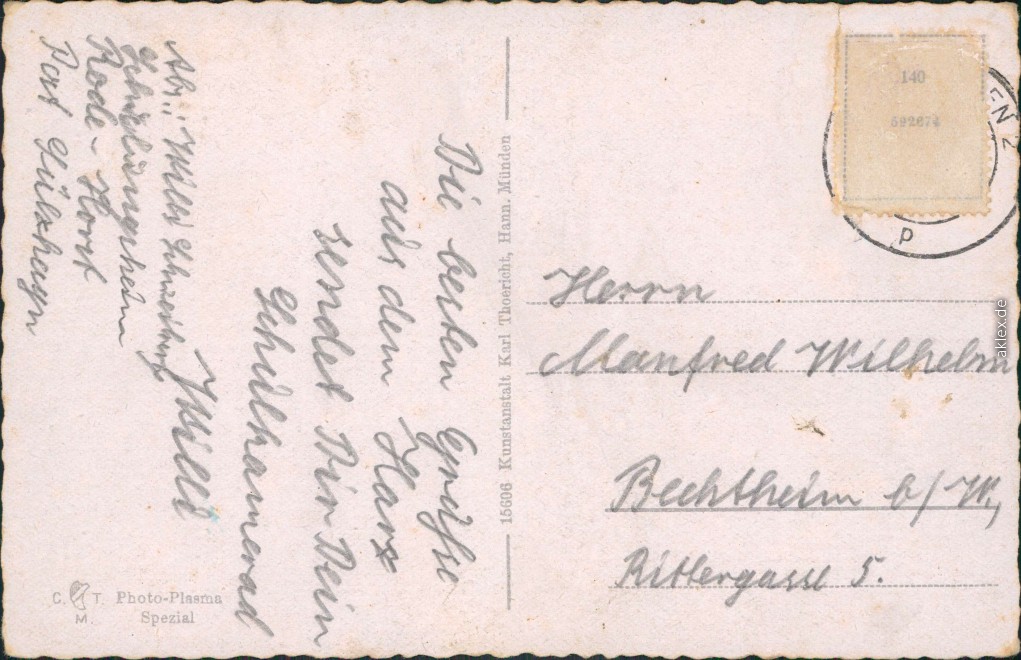 Die besten Grüße
aus dem Harz
sendet Dir Dein
Schulkamerad
Willi
Abs.: Willi
Rode-Horst
Post Sülzhayn
15606 Kunstanstalt Karl Thoericht, Hann. Münden
C. T. M.
Photo-Plasma
Spezial
140
592674
EN 2
p
Herrn
Manfred Wilhelm
Bechtheim b/W.,
Rittergasse 5.
aklex.de